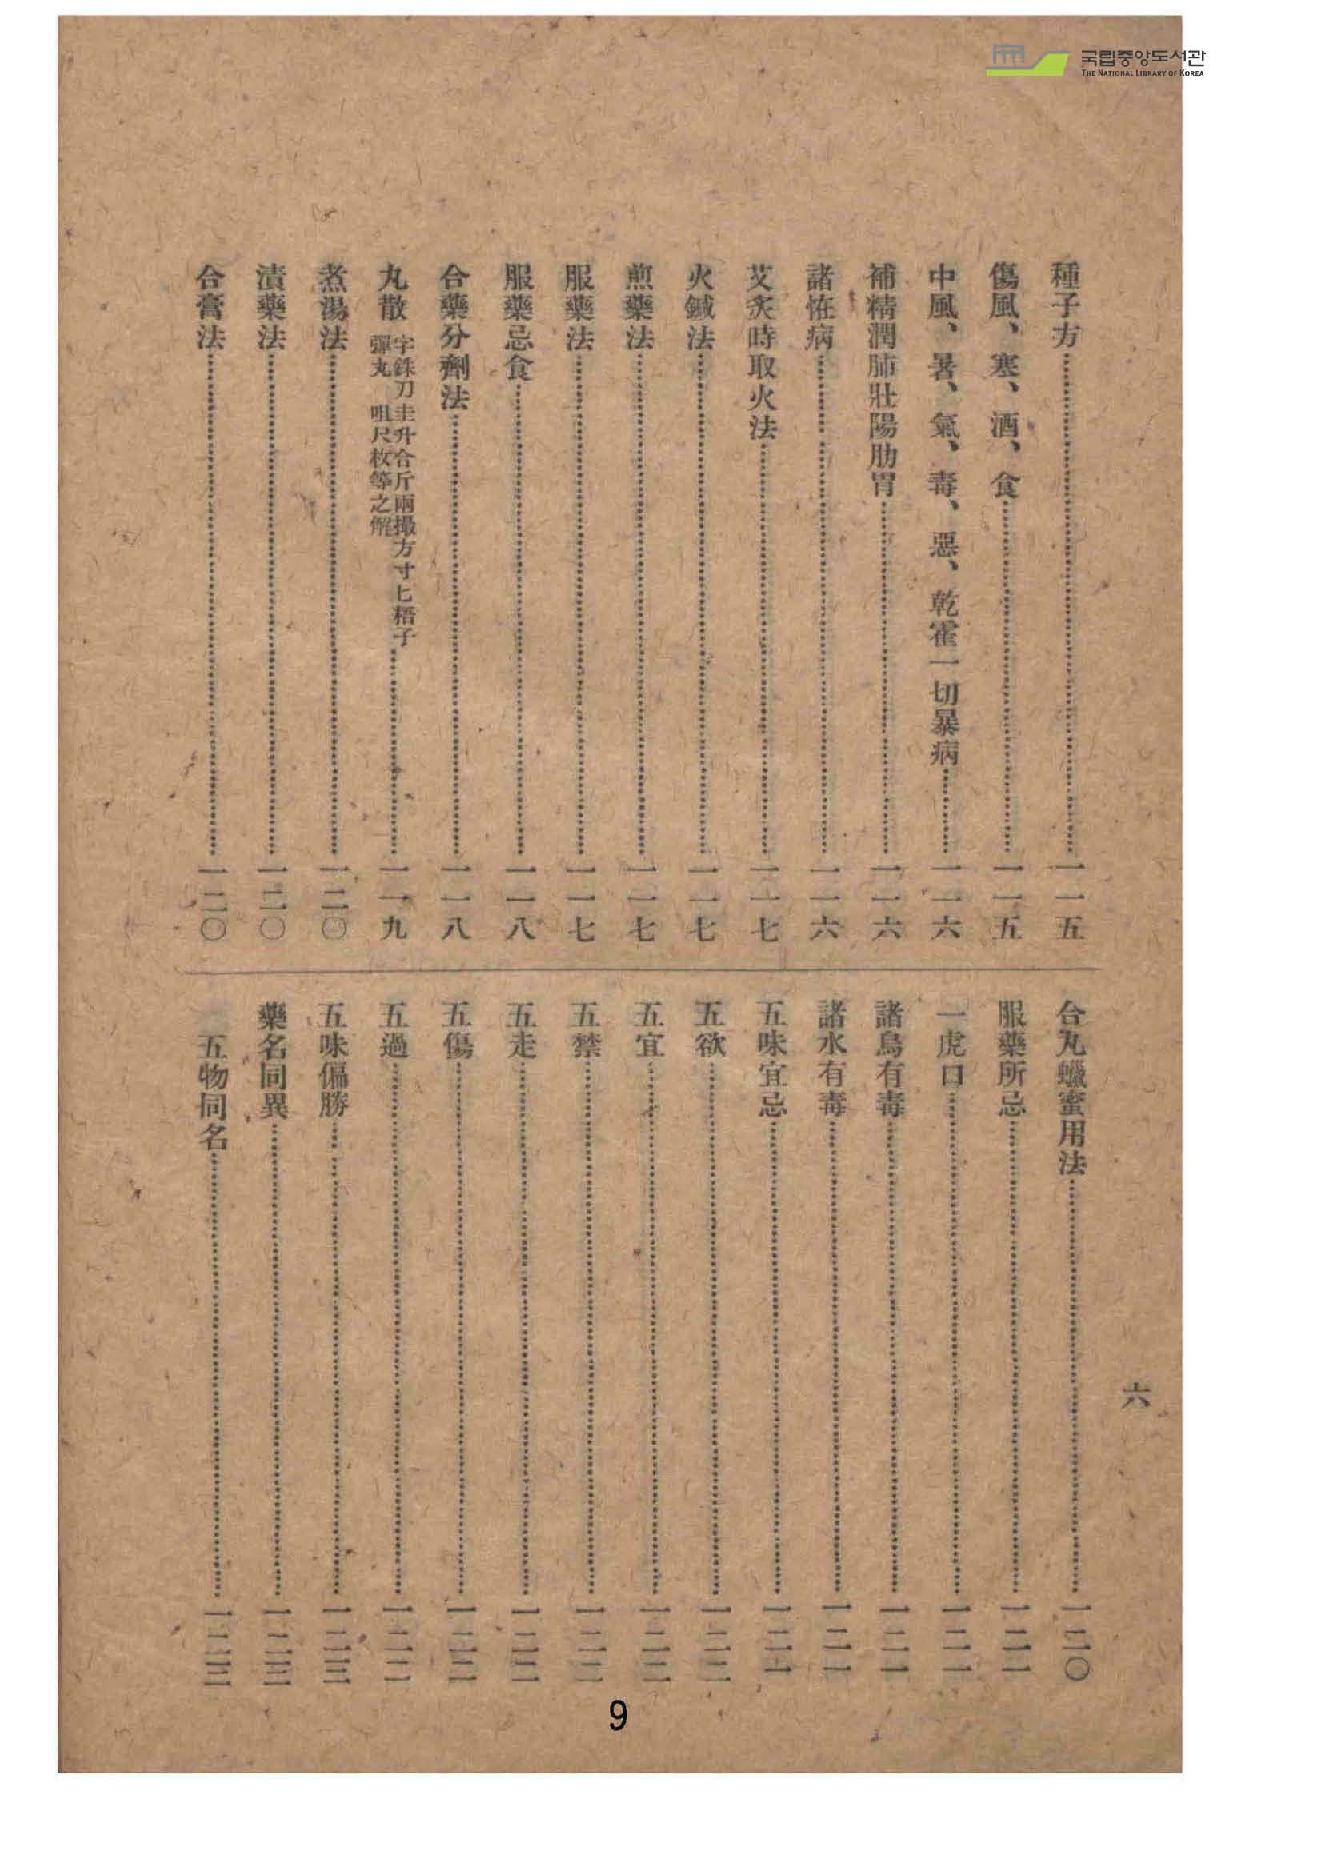 국립중앙도서관
THE NATIONAL LIBRARY OF KOREA
種子方……一一五
傷風、寒、酒、食……一一五
中風、暑、氣、毒、惡、乾霍一切暴病……一一六
補精潤肺壯陽肋胃……一一六
諸恠病……一一六
艾炙時取火法……一一七
火鍼法……一一七
煎藥法……一一七
服藥法……一一七
服藥忌食……一一八
合藥分劑法……一一八
丸散 字銖刀圭升合斤兩撮方寸匕梧子彈丸 咀尺枚等之解……一一九
煮湯法……一二〇
漬藥法……一二〇
合膏法……一二〇
合丸蠟蜜用法……一二〇
服藥所忌……一二一
一虎口……一二一
諸鳥有毒……一二一
諸水有毒……一二一
五味宜忌……一二一
五欲……一二二
五宜……一二二
五禁……一二二
五走……一二二
五傷……一二二
五過……一二二
五味偏勝……一二三
藥名同異……一二三
五物同名……一二三
六
9